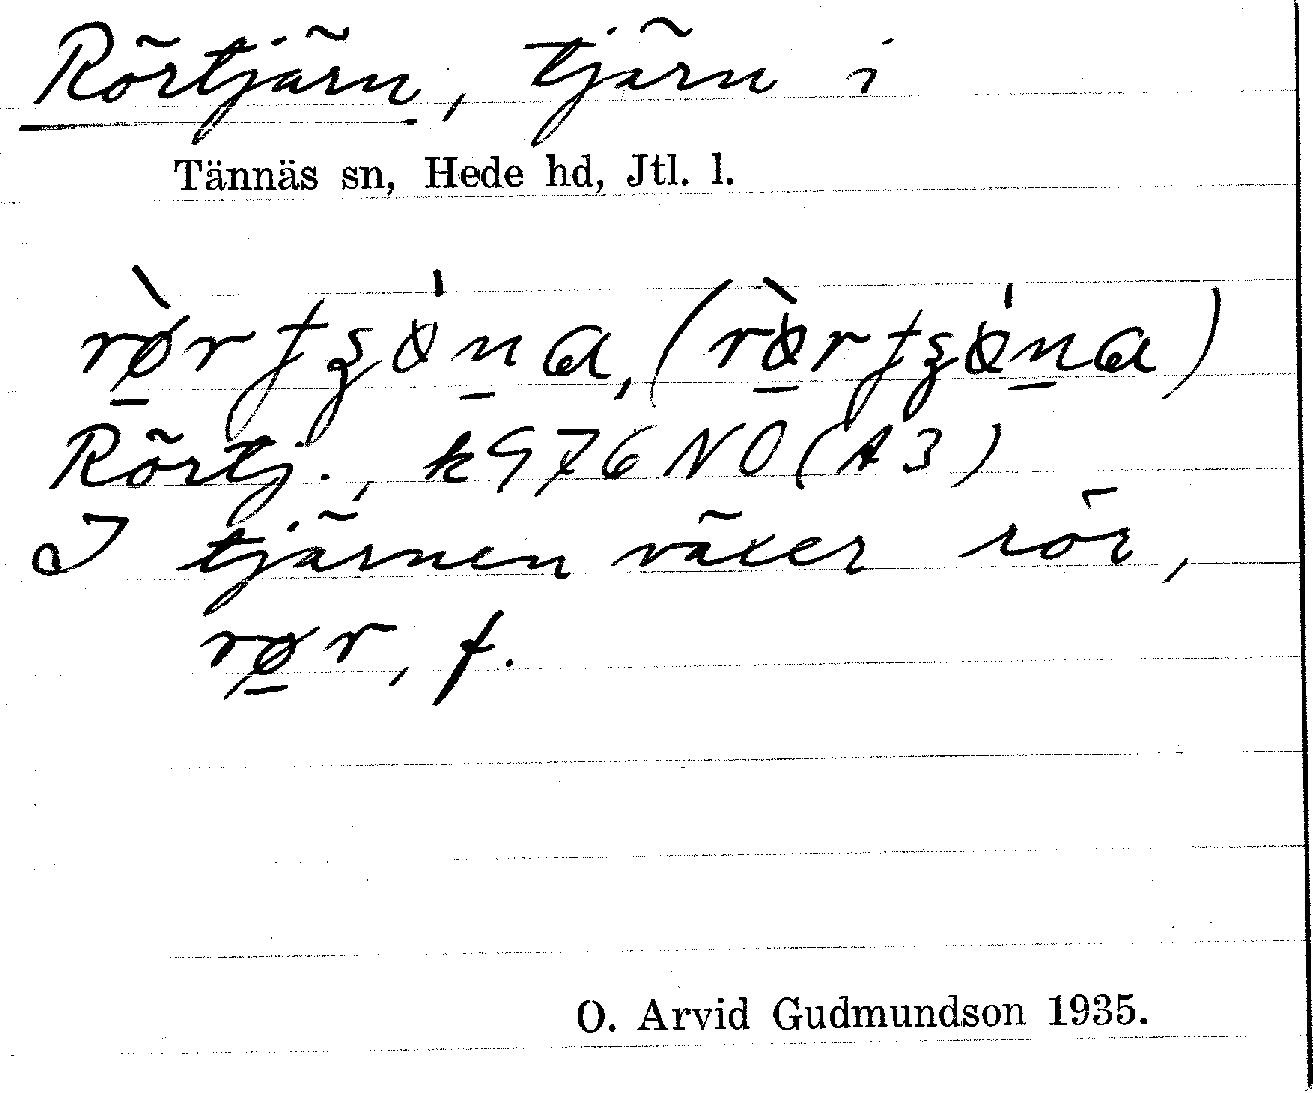 Rörtjärn, tjärn i
Tännäs sn, Hede hd, Jtl. l.
Rörtj., k976NO(A3)
I tjärnen växer rör,
rø̱r, f.
O. Arvid Gudmundson 1935.